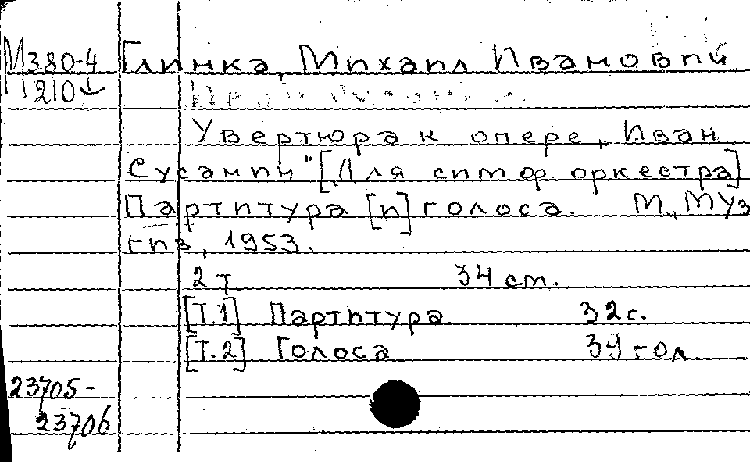 М380-4 Глинка, Михаил Иванович
1210↓
Увертюра к опере „Иван
Сусанин" [Для симф оркестра]
Партитура [и] голоса. М., Муз
гиз, 1953.
2 т 34 см.
[Т.1] Партитура 32 с.
[Т.2] Голоса 39 гол.
23705-
23706